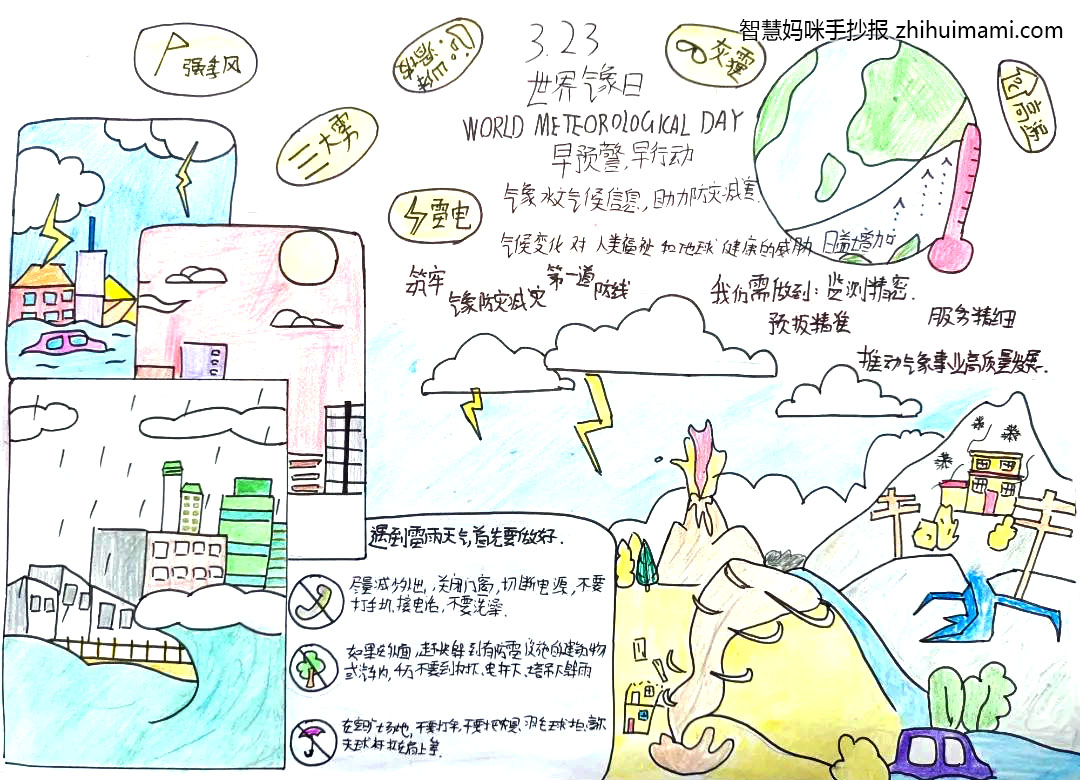 智慧妈咪手抄报 zhihuimami.com
3.23
世界气象日
WORLD METEOROLOGICAL DAY
早预警,早行动
气象水文气候信息,助力防灾减灾
气候变化对人类福祉和地球健康的威胁日益增加
筑牢
气象防灾减灾
第一道
防线
我们需做到:监测精密.
预报精准
服务精细
推动气象事业高质量发展.
强季风
山体滑坡
灰霾
高温
大雾
雷电
遇到雷雨天气,首先要做好.
尽量减少外出,关闭门窗,切断电源,不要
打手机,接电话,不要洗澡.
如果在外面,赶快躲到有防雷设施的建筑物
或汽车内,千万不要到树下、电杆下、塔吊下避雨
在空旷场地,不要打伞,不要把农具、羽毛球拍、高尔
夫球杆扛在肩上等.